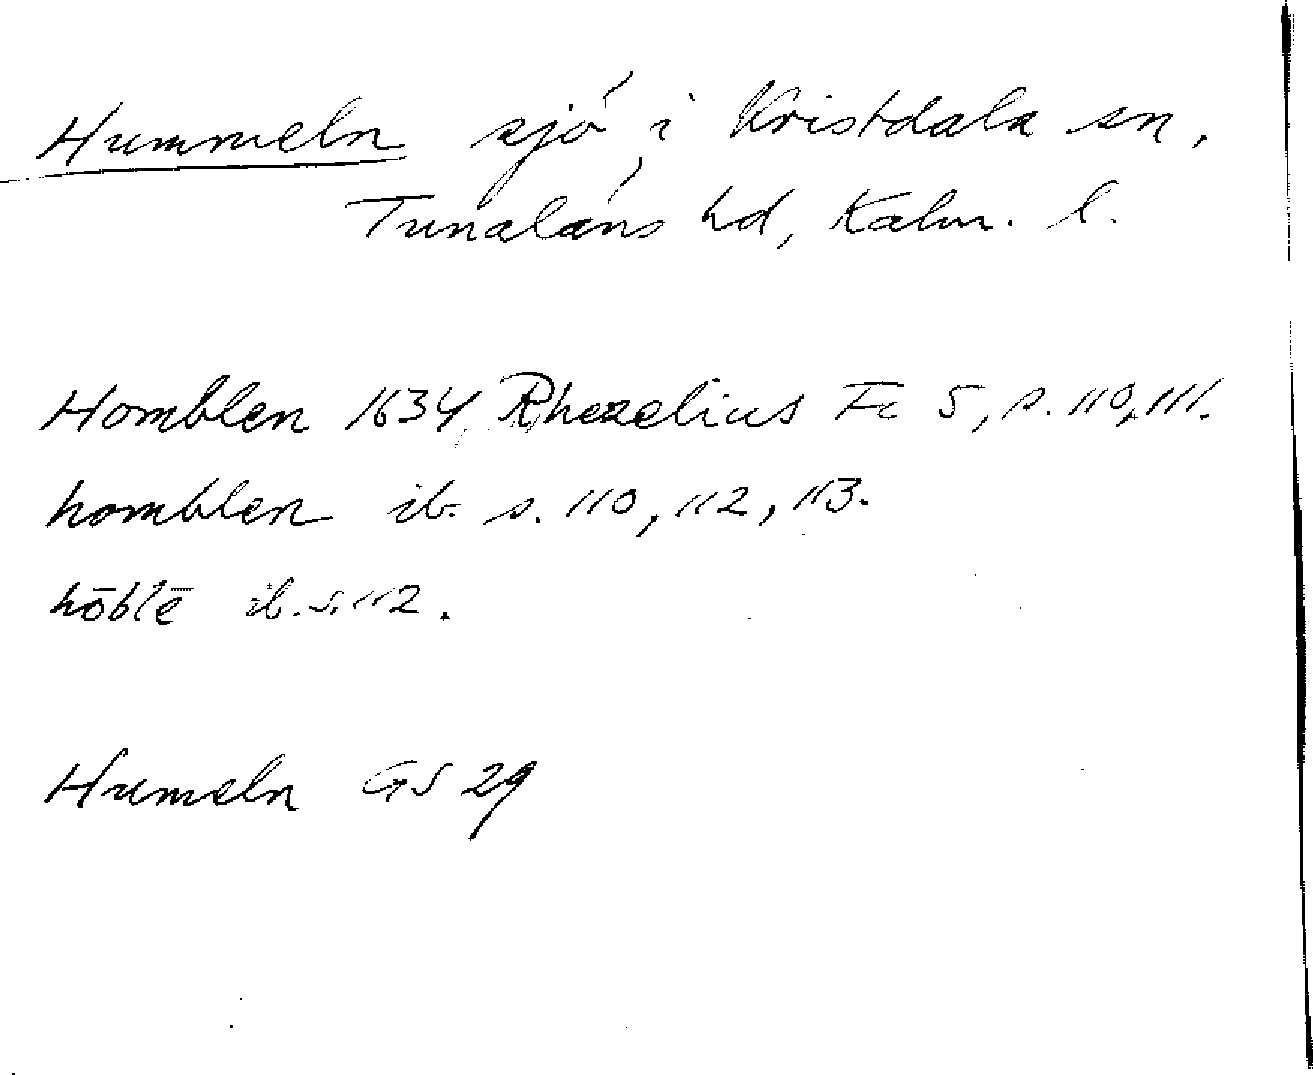 Hummeln sjö i Kristdala sn,
Tunaläns hd, Kalm. l.
Homblen 1634 Rhezelius Fc 5, s. 110, 111.
homblen ib. s. 110, 112, 113.
hōblē ib. s. 112.
Humeln GS 29